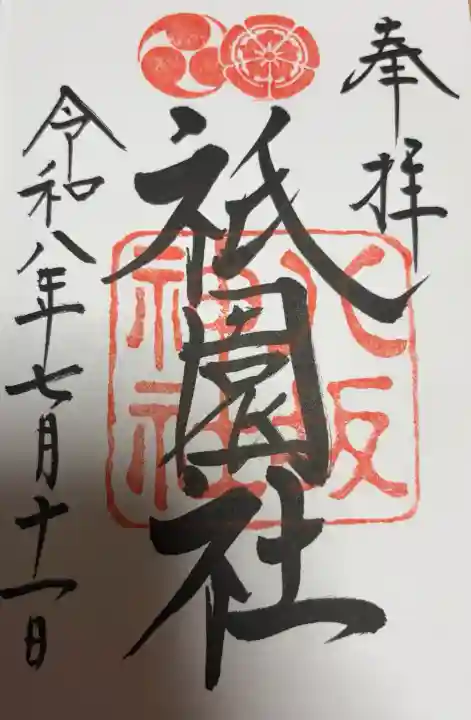 奉拝
祇園社
八坂
神社
令和八年七月十一日